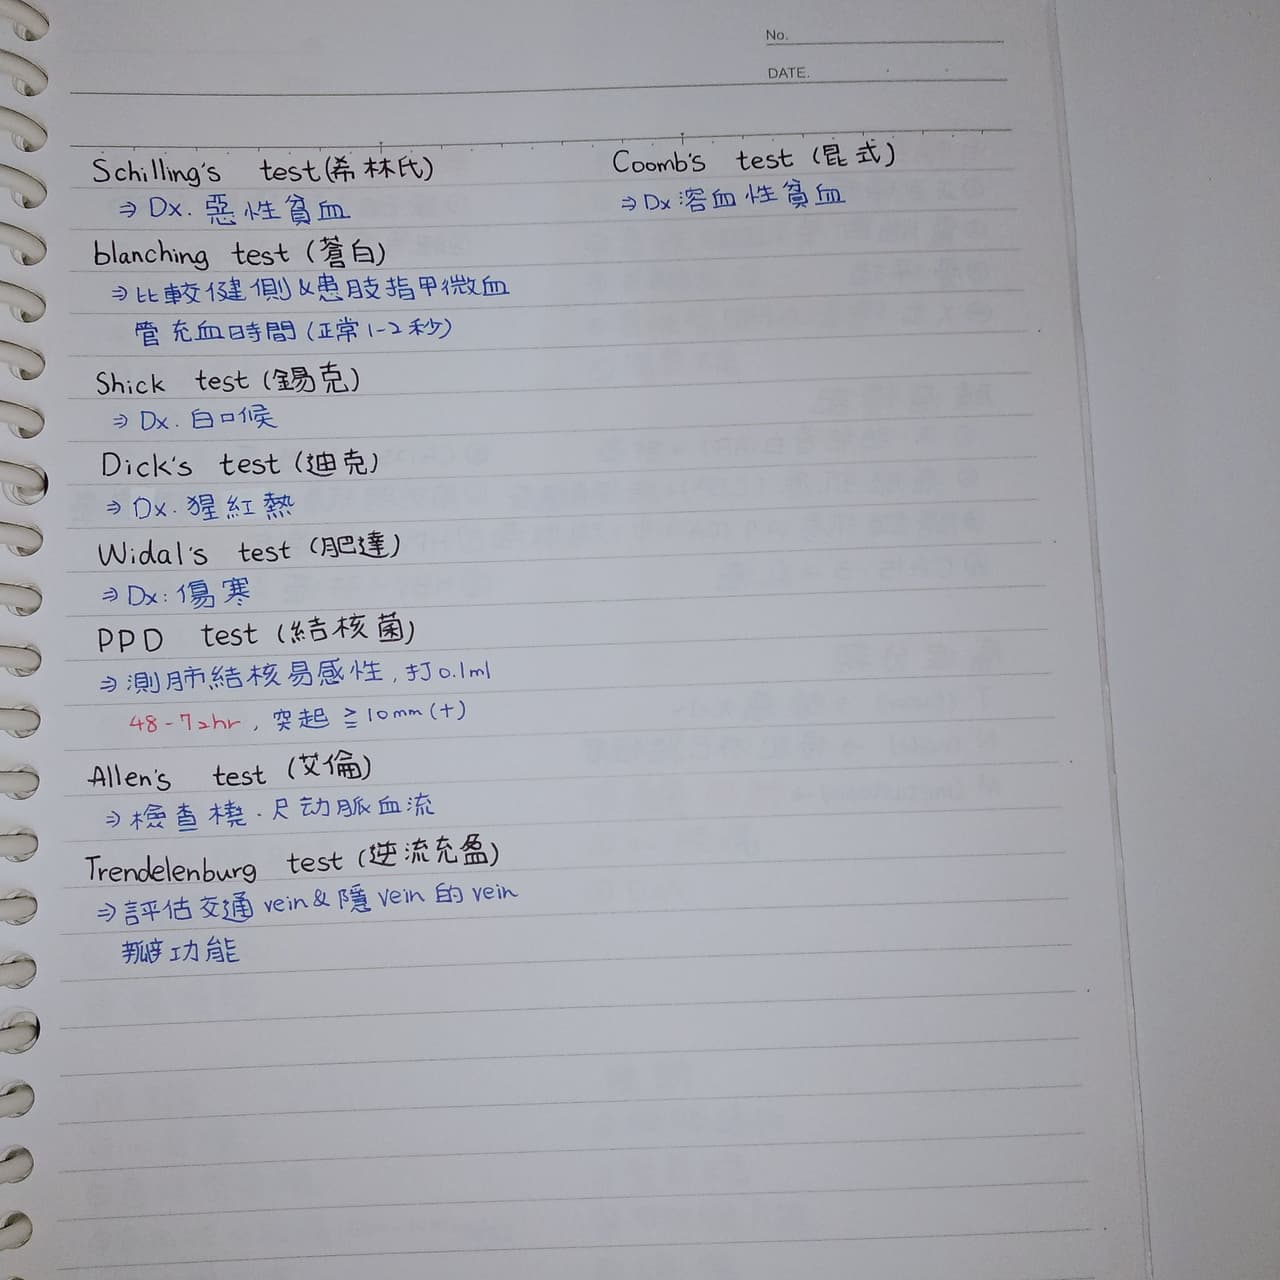 No.
DATE.
Schilling's test(希林氏)
⇒ Dx. 惡性貧血
blanching test (蒼白)
⇒ 比較健側&患肢指甲微血
管充血時間 (正常1-2秒)
Shick test (錫克)
⇒ Dx. 白口候
Dick's test (迪克)
⇒ Dx. 猩紅熱
Widal's test (肥達)
⇒ Dx: 傷寒
PPD test (結核菌)
⇒ 測肺結核易感性, 打0.1ml
48-72hr, 突起 ≧10mm(+)
Allen's test (艾倫)
⇒ 檢查橈.尺动脈血流
Trendelenburg test (逆流充盈)
⇒ 評估交通vein&隱vein的vein
瓣功能
Coomb's test (昆式)
⇒ Dx 溶血性貧血